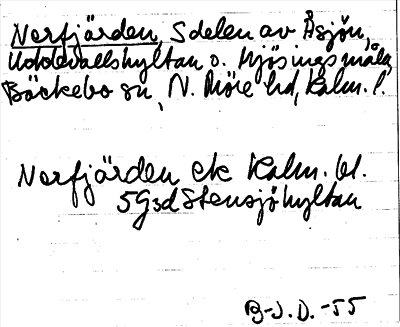 Norfjärden, Sdelen av Åsjön,
Uddevallshyltan o. Mjösingsmåla
Bäckebo sn, N. Möre hd, Kalm. l.
Norfjärden ek Kalm. bl.
5G3d Stensjöhyltan
B-J. D. -55